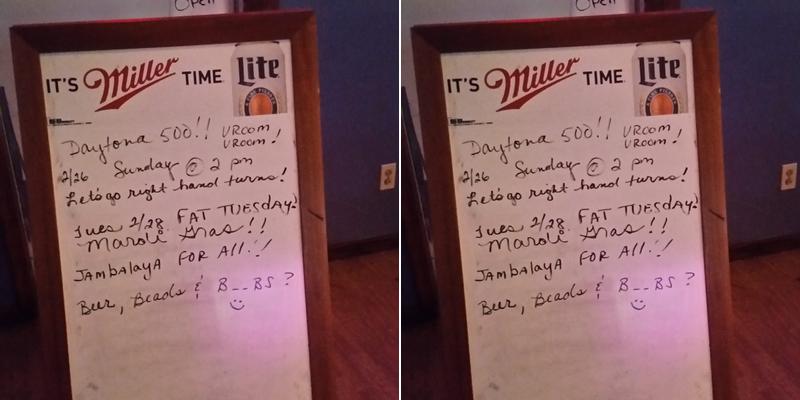 Open
IT'S Miller TIME Lite
Daytona 500!! VROOM VROOM!
2/26 Sunday @ 2 pm
Let's go right hand turns!
Tues 2/28 FAT TUESDAY!
Mardi Gras!!
JAMBALAYA FOR All!!
Beer, Beads & B__BS?
Open
IT'S Miller TIME Lite
Daytona 500!! VROOM VROOM!
2/26 Sunday @ 2 pm
Let's go right hand turns!
Tues 2/28 FAT TUESDAY!
Mardi Gras!!
JAMBALAYA FOR All!!
Beer, Beads & B__BS?